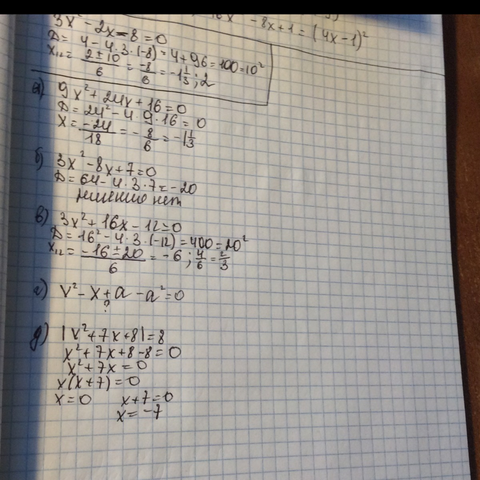 16x² - 8x + 1 = (4x - 1)²
3x² - 2x - 8 = 0
D = 4 - 4·3·(-8) = 4 + 96 = 100 = 10²
x₁,₂ = (2 ± 10)/6 = -8/6 = -1 1/3; 2
а) 9x² + 24x + 16 = 0
D = 24² - 4·9·16 = 0
x = -24/18 = -8/6 = -1 1/3
б) 3x² - 8x + 7 = 0
D = 64 - 4·3·7 = -20
решению нет
в) 3x² + 16x - 12 = 0
D = 16² - 4·3·(-12) = 400 = 20²
x₁,₂ = (-16 ± 20)/6 = -6; 4/6 = 2/3
г) x² - x + a - a² = 0
?
д) |x² + 7x + 8| = 8
x² + 7x + 8 - 8 = 0
x² + 7x = 0
x(x + 7) = 0
x = 0 x + 7 = 0
x = -7